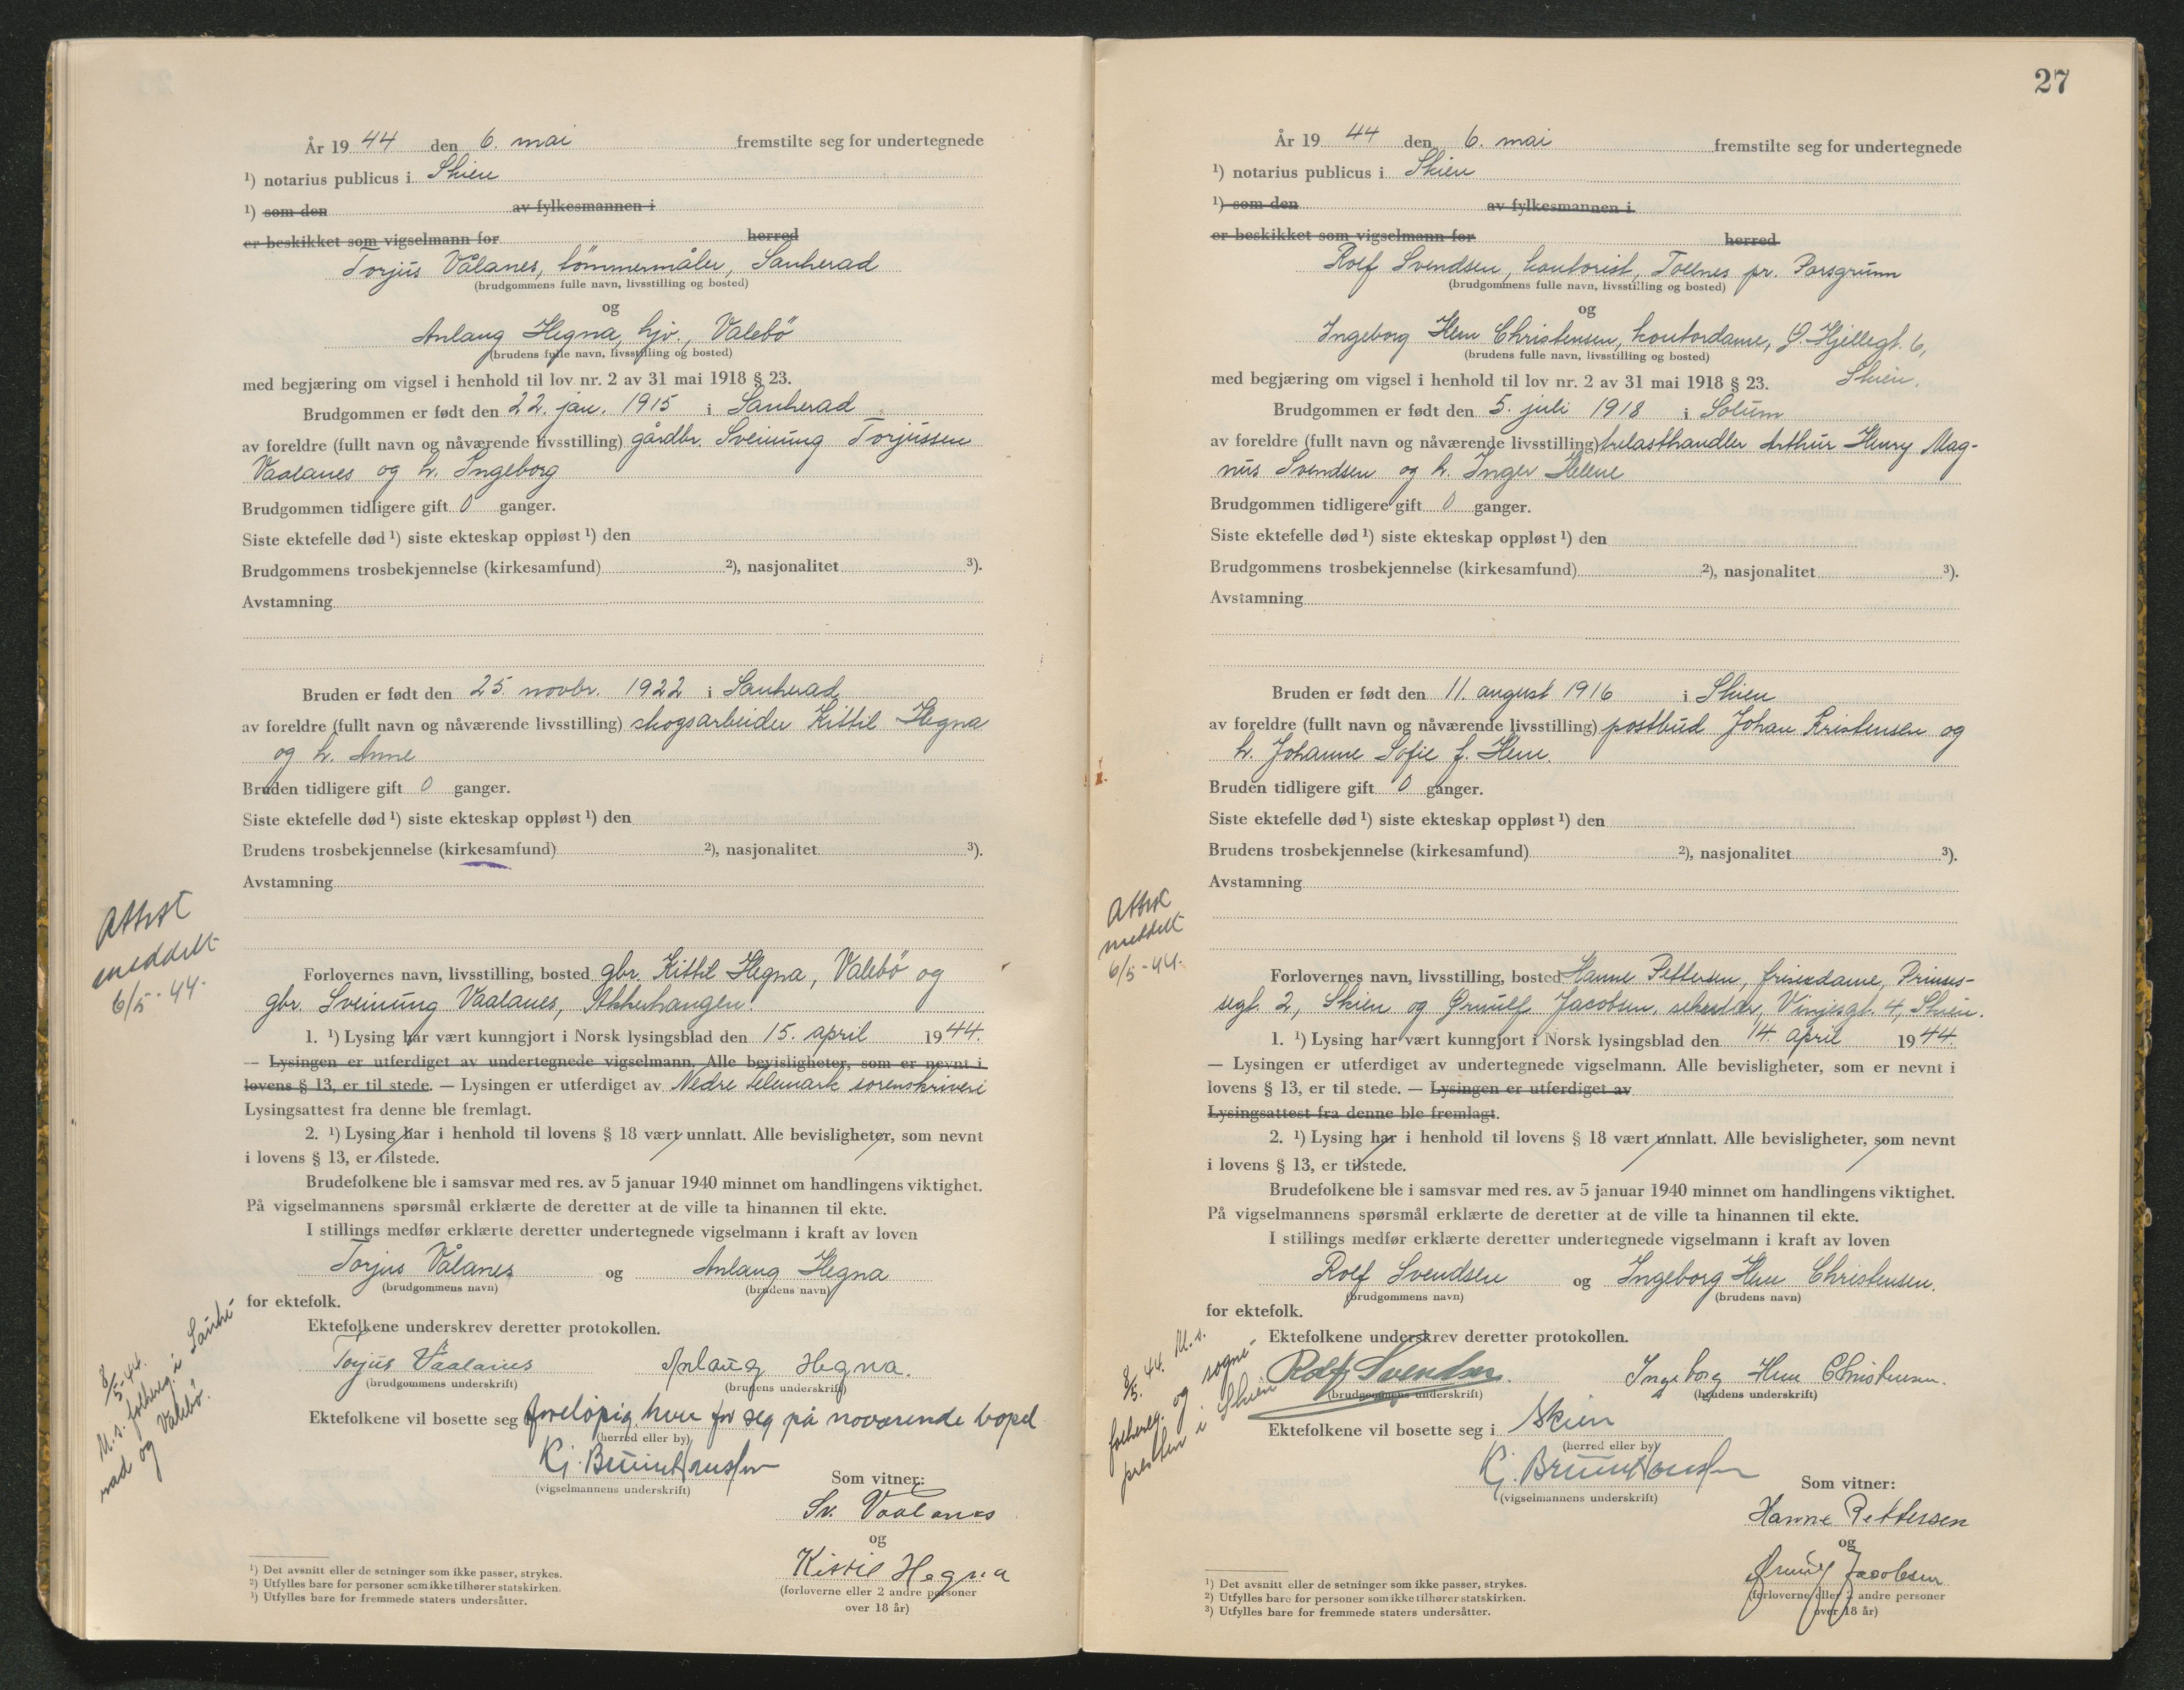 År 19 44 den 6. mai fremstilte seg for undertegnede
¹) notarius publicus i Skien
¹) som den av fylkesmannen i
er beskikket som vigselmann for herred
Torjus Vålanes, tömmermåler, Sauherad
(brudgommens fulle navn, livsstilling og bosted)
og
Anlaug Hegna, hjv., Valebö
(brudens fulle navn, livsstilling og bosted)
med begjæring om vigsel i henhold til lov nr. 2 av 31 mai 1918 § 23.
Brudgommen er født den 22. jan. 1915 i Sauherad
av foreldre (fullt navn og nåværende livsstilling) gårdbr. Sveinung Torjussen
Vaalanes og h. Ingeborg
Brudgommen tidligere gift 0 ganger.
Siste ektefelle død ¹) siste ekteskap oppløst ¹) den
Brudgommens trosbekjennelse (kirkesamfund) ²), nasjonalitet ³).
Avstamning
Bruden er født den 25. novbr. 1922 i Sauherad
av foreldre (fullt navn og nåværende livsstilling) skogsarbeider Kittil Hegna
og h. Anne
Bruden tidligere gift 0 ganger.
Siste ektefelle død ¹) siste ekteskap oppløst ¹) den
Brudens trosbekjennelse (kirkesamfund) ²), nasjonalitet ³).
Avstamning
Attest
meddelt
6/5-44.
Forlovernes navn, livsstilling, bosted gbr. Kittil Hegna, Valebö og
gbr. Sveinung Vaalanes, Akkerhaugen.
1. ¹) Lysing har vært kunngjort i Norsk lysingsblad den 15. april 1944.
— Lysingen er utferdiget av undertegnede vigselmann. Alle bevisligheter, som er nevnt i
lovens § 13, er til stede. — Lysingen er utferdiget av Nedre Telemark sorenskriveri
Lysingsattest fra denne ble fremlagt.
2. ¹) Lysing har i henhold til lovens § 18 vært unnlatt. Alle bevisligheter, som nevnt
i lovens § 13, er tilstede.
Brudefolkene ble i samsvar med res. av 5 januar 1940 minnet om handlingens viktighet.
På vigselmannens spørsmål erklærte de deretter at de ville ta hinannen til ekte.
I stillings medfør erklærte deretter undertegnede vigselmann i kraft av loven
Torjus Vålanes og Anlaug Hegna
(brudgommens navn) (brudens navn)
for ektefolk.
Ektefolkene underskrev deretter protokollen.
Torjus Vaalanes Anlaug Hegna.
(brudgommens underskrift) (brudens underskrift)
8/5-44.
M. s. folkereg. i Sauhe-
rad og Valebö.
Ektefolkene vil bosette seg foreløpig hver for seg på noværende bopel
(herred eller by)
Kj. Bruun Hanssen
(vigselmannens underskrift)
Som vitner:
Sv. Vaalanes
og
Kittil Hegna
(forloverne eller 2 andre personer
over 18 år)
¹) Det avsnitt eller de setninger som ikke passer, strykes.
²) Utfylles bare for personer som ikke tilhører statskirken.
³) Utfylles bare for fremmede staters undersåtter.
27
År 19 44 den 6. mai fremstilte seg for undertegnede
¹) notarius publicus i Skien
¹) som den av fylkesmannen i
er beskikket som vigselmann for herred
Rolf Svendsen, kontorist, Tollnes pr. Porsgrunn
(brudgommens fulle navn, livsstilling og bosted)
og
Ingeborg Hem Christensen, kontordame, G. Hjellegt. 6,
(brudens fulle navn, livsstilling og bosted)
med begjæring om vigsel i henhold til lov nr. 2 av 31 mai 1918 § 23. Skien.
Brudgommen er født den 5. juli 1918 i Solum
av foreldre (fullt navn og nåværende livsstilling) trelasthandler Arthur Henry Mag-
nus Svendsen og h. Inger Helene
Brudgommen tidligere gift 0 ganger.
Siste ektefelle død ¹) siste ekteskap oppløst ¹) den
Brudgommens trosbekjennelse (kirkesamfund) ²), nasjonalitet ³).
Avstamning
Bruden er født den 11. august 1916 i Skien
av foreldre (fullt navn og nåværende livsstilling) postbud Johan Kristensen og
h. Johanne Sofie f. Hem.
Bruden tidligere gift 0 ganger.
Siste ektefelle død ¹) siste ekteskap oppløst ¹) den
Brudens trosbekjennelse (kirkesamfund) ²), nasjonalitet ³).
Avstamning
Attest
meddelt
6/5-44.
Forlovernes navn, livsstilling, bosted Hanne Pettersen, friserdame, Prinses-
segt. 2, Skien og Ørnulf Jacobsen, sekretær, Vinjesgt. 4, Skien.
1. ¹) Lysing har vært kunngjort i Norsk lysingsblad den 14. april 1944.
— Lysingen er utferdiget av undertegnede vigselmann. Alle bevisligheter, som er nevnt i
lovens § 13, er til stede. — Lysingen er utferdiget av
Lysingsattest fra denne ble fremlagt.
2. ¹) Lysing har i henhold til lovens § 18 vært unnlatt. Alle bevisligheter, som nevnt
i lovens § 13, er tilstede.
Brudefolkene ble i samsvar med res. av 5 januar 1940 minnet om handlingens viktighet.
På vigselmannens spørsmål erklærte de deretter at de ville ta hinannen til ekte.
I stillings medfør erklærte deretter undertegnede vigselmann i kraft av loven
Rolf Svendsen og Ingeborg Hem Christensen.
(brudgommens navn) (brudens navn)
for ektefolk.
Ektefolkene underskrev deretter protokollen.
Rolf Svendsen. Ingeborg Hem Christensen.
(brudgommens underskrift) (brudens underskrift)
8/5. 44. M. s.
folkereg. og sogne-
presten i Skien
Ektefolkene vil bosette seg i Skien
(herred eller by)
Kj. Bruun Hanssen
(vigselmannens underskrift)
Som vitner:
Hanne Pettersen
og
Ørnulf Jacobsen
(forloverne eller 2 andre personer
over 18 år)
¹) Det avsnitt eller de setninger som ikke passer, strykes.
²) Utfylles bare for personer som ikke tilhører statskirken.
³) Utfylles bare for fremmede staters undersåtter.